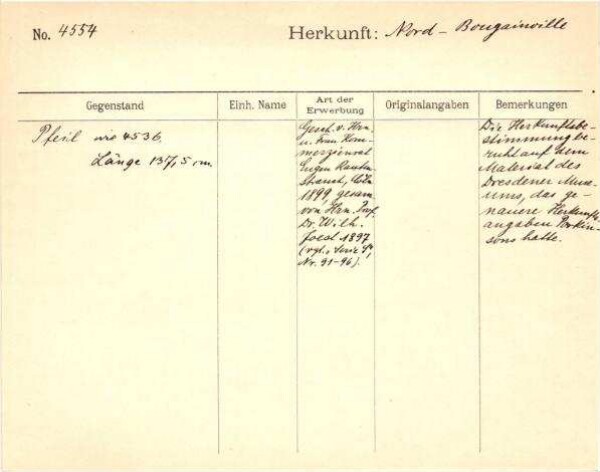 No. 4554
Herkunft: Nord - Bougainville
Gegenstand
Einh. Name
Art der
Erwerbung
Originalangaben
Bemerkungen
Pfeil wie 4536.
Länge 137,5 cm.
Gesch. v. Hrn.
u. Frau Kom-
merzienrat
Eugen Rauten-
strauch, Cöln
1899, gesam.
von Hrn. Prof.
Dr. Wilh.
Joest 1897
(vgl. Serie
Nr. 91-96).
Die Herkunftsbe-
stimmung be-
ruht auf dem
Material des
Dresdener Muse-
ums, das ge-
nauere Herkunfts-
angaben Parkin-
sons hatte.